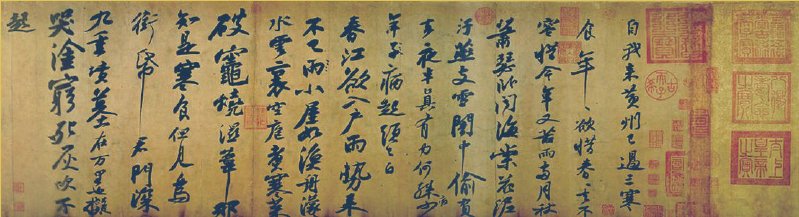 自我來黃州已過三寒
食年〻欲惜春〻去不
容惜今年又苦雨兩月秋
蕭瑟卧聞海棠花泥
汙燕支雪闇中偷負
去夜半真有力何殊少
年子病起頭已白
春江欲入戶雨勢來
不已雨小屋如漁舟濛〻
水雲裏空庖煮寒菜
破竈燒濕葦那
知是寒食但見烏
銜帋君門深
九重墳墓在万里也擬
哭塗窮死灰吹不
起